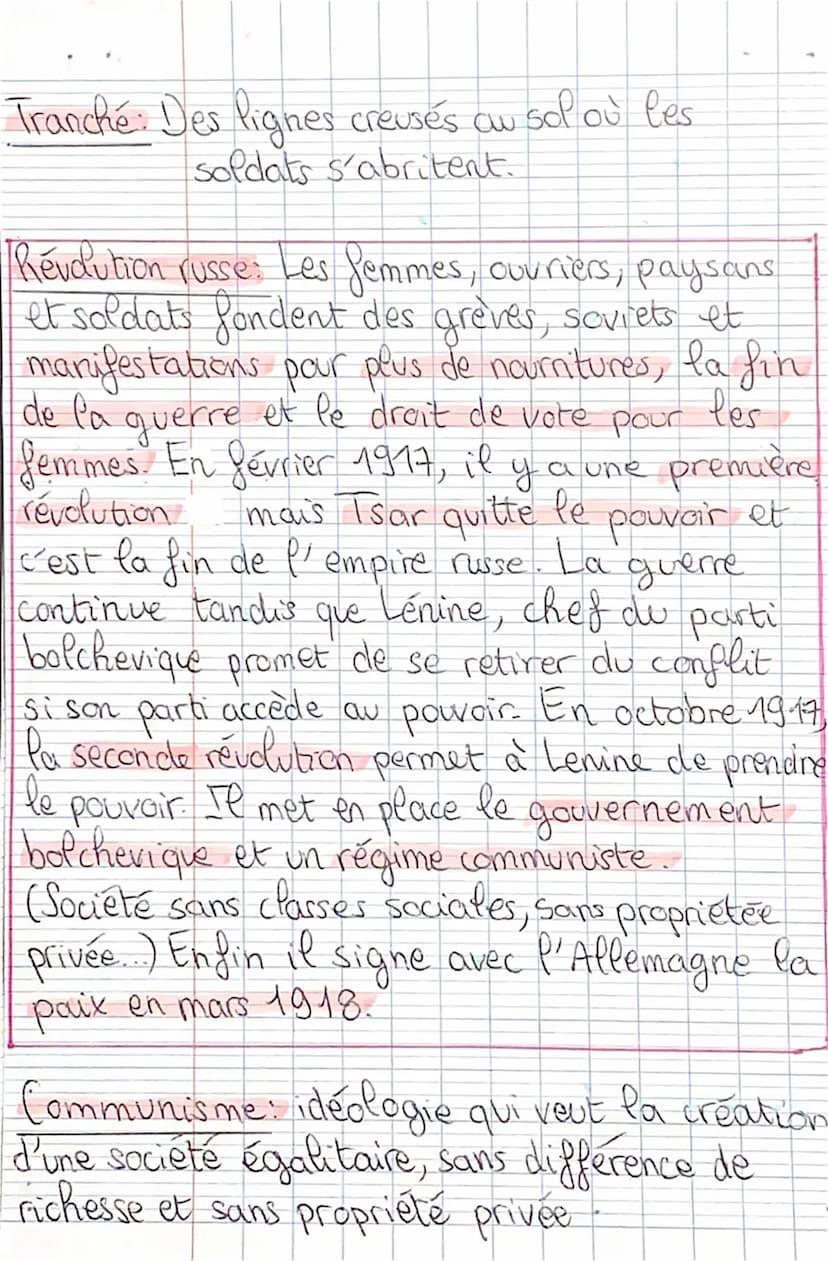 Tranché: Des lignes creusés au sol où les
soldats s'abritent.
Révolution russe: Les femmes, ouvriers, paysans
et soldats fondent des grèves, soviets et
manifestations pour plus de nourritures, la fin
de la guerre et le droit de vote pour les
femmes. En février 1917, il y a une première
révolution mais Tsar quitte le pouvoir et
c'est la fin de l'empire russe. La guerre
continue tandis que Lénine, chef du parti
bolchevique promet de se retirer du conflit
si son parti accède au pouvoir. En octobre 1917,
la seconde révolution permet à Lenine de prendre
le pouvoir. Il met en place le gouvernement
bolchevique et un régime communiste.
(Société sans classes sociales, sans propriétée
privée...) Enfin il signe avec l'Allemagne la
paix en mars 1918.
Communisme: idéologie qui veut la création
d'une société égalitaire, sans différence de
richesse et sans propriété privée.